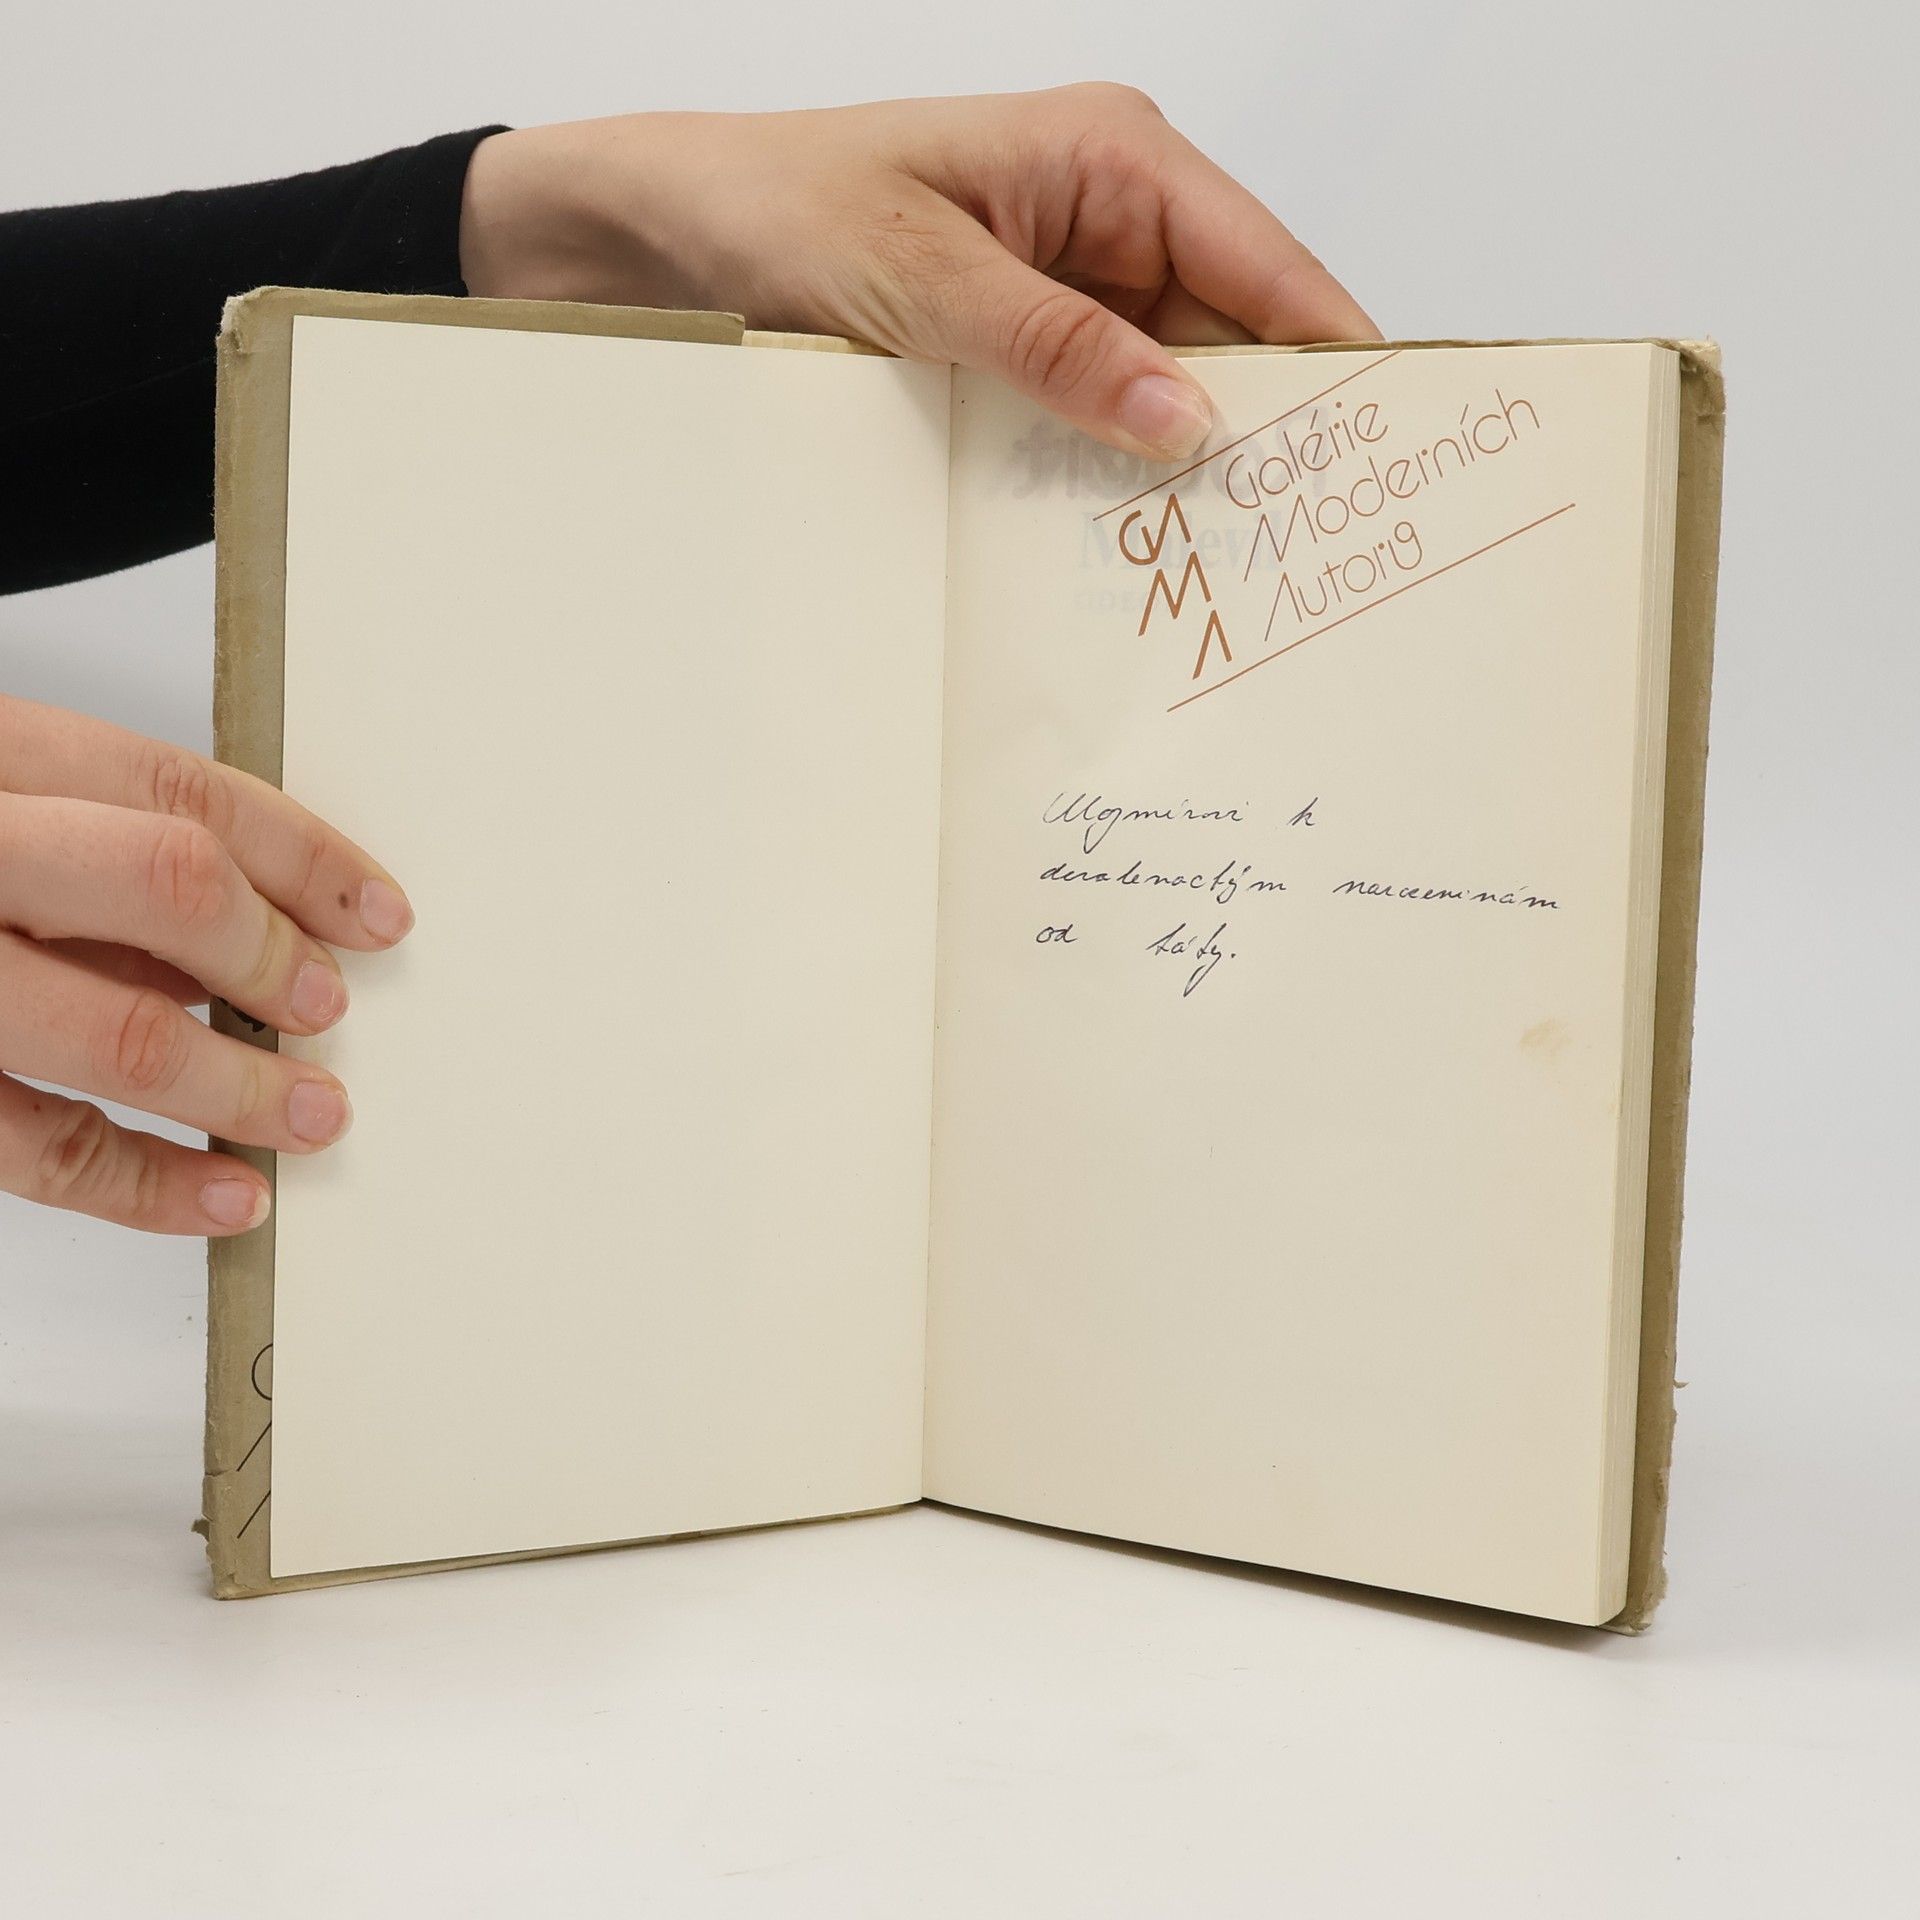 Galérie
Moderních
Autorů
GMA
Mojmírovi k
devatenactým narozeninám
od táty.